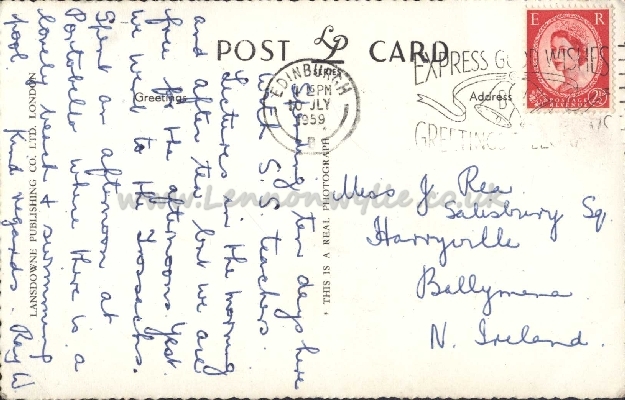 POST LP CARD
Greetings
Address
E R
POSTAGE
REVENUE
2½
EDINBURGH
PM
JLY
1959
EXPRESS GOOD WISHES
GREETINGS
ten days here
with S.S teachers.
Lectures in the morning
and after tea but we are
free for the afternoons. Yest.
we went to the Trossachs.
Spent an afternoon at
Portobello where there is a
lovely beach & swimming
pool. Kind regards. Ray W.
Miss J Rea
Salisbury Sq.
Harryville
Ballymena
N. Ireland.
THIS IS A REAL PHOTOGRAPH
LANSDOWNE PUBLISHING CO. LTD. LONDON